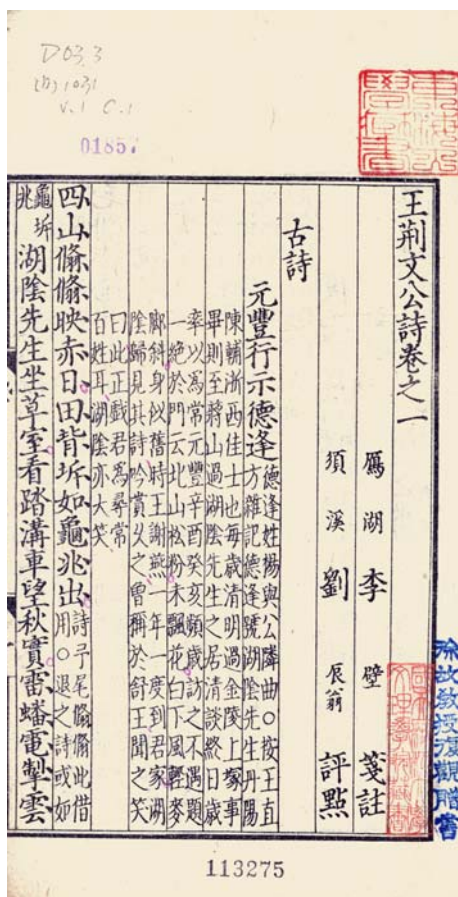 D03.3
(b)1031
V.1 C.1
01857
王荊文公詩卷之一
鴈湖李壁箋註
須溪劉辰翁評點
古詩
元豐行示德逢
德逢姓楊與公隣曲○按王直
方雜記德逢號湖陰先生丹陽
陳輔浙西佳士也每歲清明過金陵上塚事
畢則至蔣山過湖陰先生之居清談終日歲
率以為常元豐辛酉癸亥頻歲訪之不遇題
一絕於門云此山松粉未飄花白下風輕麥
脚斜身似舊時王謝燕一年一度到君家湖
陰歸見其詩吟賞久之曽稱於舒王聞之笑
曰此正戲君為尋常
百姓耳湖陰亦大笑
四山翛翛映赤日田背坼如龜兆出
詩予尾翛翛此借
用○退之詩或如
龜坼
兆
湖陰先生坐草室看踏溝車望秋實雷蟠電掣雲
徐故教授復觀贈書
113275